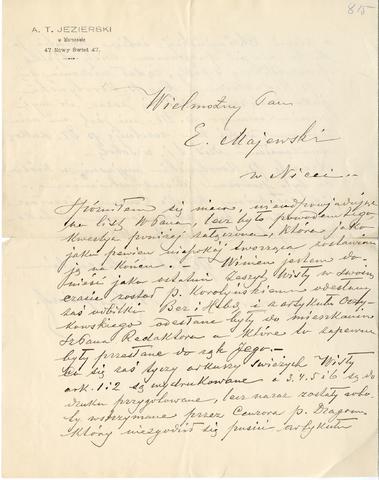 815
A. T. JEZIERSKI
w Warszawie
47 Nowy Świat 47.
Wielmożny Pan
E. Majewski
w Nicei.
Spóźniłem się nieco, nieodpowiadając
na listy WPana, lecz było powodem tego
kwestya poniżej załączona, która jako
jako pewien niepokój tworząca zostawiam
ją na koniec. Winien jestem do-
nieść jako ostatni zeszyt Wisły w swoim
czasie został p. Karołyńskiem odesłany
zaś odbitki i z artykułu
odesłane były do mieszkania
Redaktora a które to zapewne
były przesłane do rąk Jego.
Co się zaś tyczy arkuszy świeżych Wisły
ark. 1 i 2 są wydrukowane a 3. 4. 5 i 6 są do
druku przygotowane, lecz naraz zostały
wstrzymane przez Cenzora p.
który niezgodził się puścić artykułu